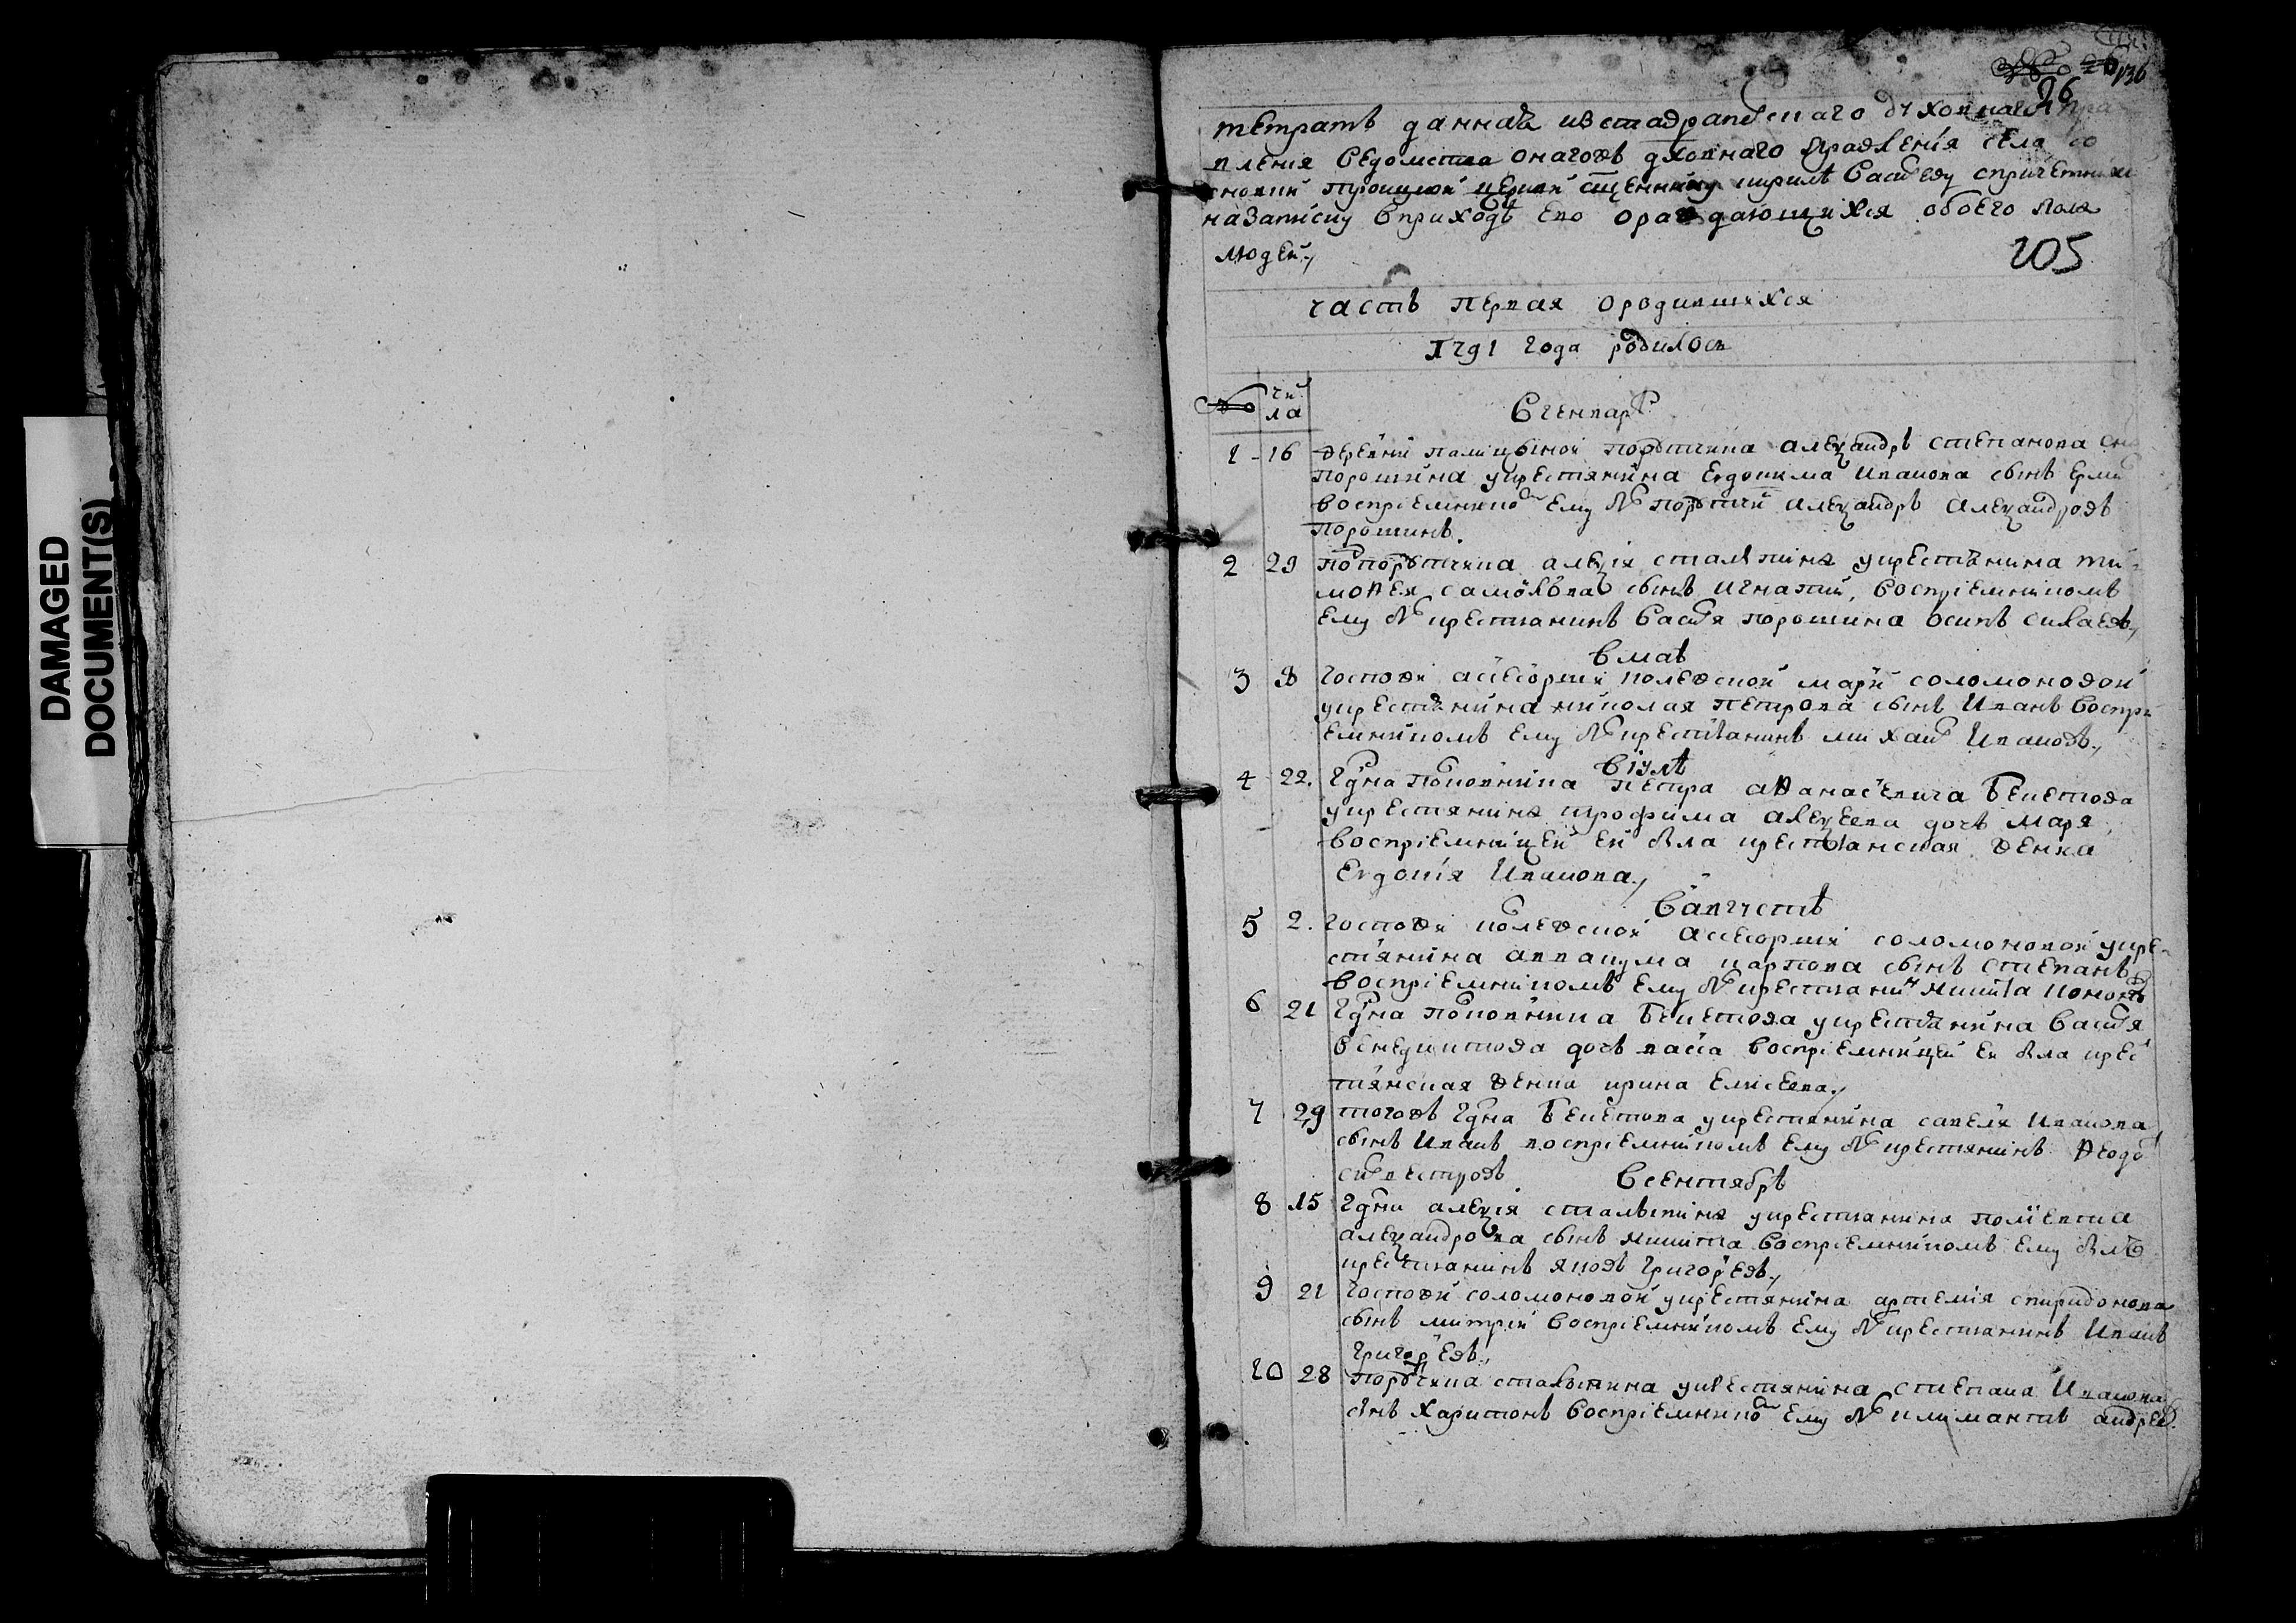 DAMAGED
DOCUMENT(S)
136
26
тетрать данная изставрапольскаго духовнаго пра
вления ведомства онагожъ духовнаго правления села
Троицкой церкви священнику кирилѣ Василеву спричетники
назаписку вприходѣ его ораждающихся обоего пола
людей,
205
часть первая ородившихся
1791 года родилось
№ чи
сла
Вгенварѣ
1 16 деревни порутчика александръ степанова
Порошина укрестьянина Евдокима Иванова сынъ
воспрiемнико Ему бы порутчи александръ александровъ
Порошинъ.
2 29 Попорутчика алеѯiя сталыпина укрестьянина ти-
моѳея самойлова сынъ игнатий, воспрiемникомъ
Ему бы крестьянинъ васья порошина осипъ силаевъ,
вмаѣ
3 8 госпожи асесорши колевской марьи соломоновой
укрестьянина николая петрова сынъ Иванъ воспри
емникомъ Ему бы крестьянинъ михаи Ивановъ,
вiулѣ
4 22. Гдна Полковника Петра аѳанасьевича Бекетова
укрестьянина трофима алеѯеева дочь Марья,
воспрiемницей ей была крестьянская девка
Евдокiя Иванова,
Вавгустѣ
5 2. госпожи колевской асесорши соломоновой укре-
стьянина аввакума карпова сынъ степанъ
воспрiемникомъ Ему бы крестьянинъ никита
6 21 Гдна Полковника Бекетова укрестьянина васья
венедиктова дочь васса воспрiемницей ей была крес
тьянская девка ирина Елисеева,
7 29 тогожъ Гдна Бекетова укрестьянина савелья Иванова
сынъ Иванъ воспрiемникомъ Ему бы крестьянинъ Ѳеодо
сильвестровъ
Всентябрѣ
8 15 Гдна алеѯiя сталыпина укрестьянина полиевкта
алеѯандрова сынъ никита воспрiемникомъ Ему былъ
крестьянинъ яковъ Григорьевъ,
9 21 госпожи соломоновой укрестьянина артемiя спиридонова
сынъ митрей воспрiемникомъ Ему бы крестьянинъ Иванъ
Григорьевъ,
10 28 Порутчика сталыпина укрестьянина степана Иванова
сынъ Харитонъ воспрiемнико Ему бы климантъ андрее